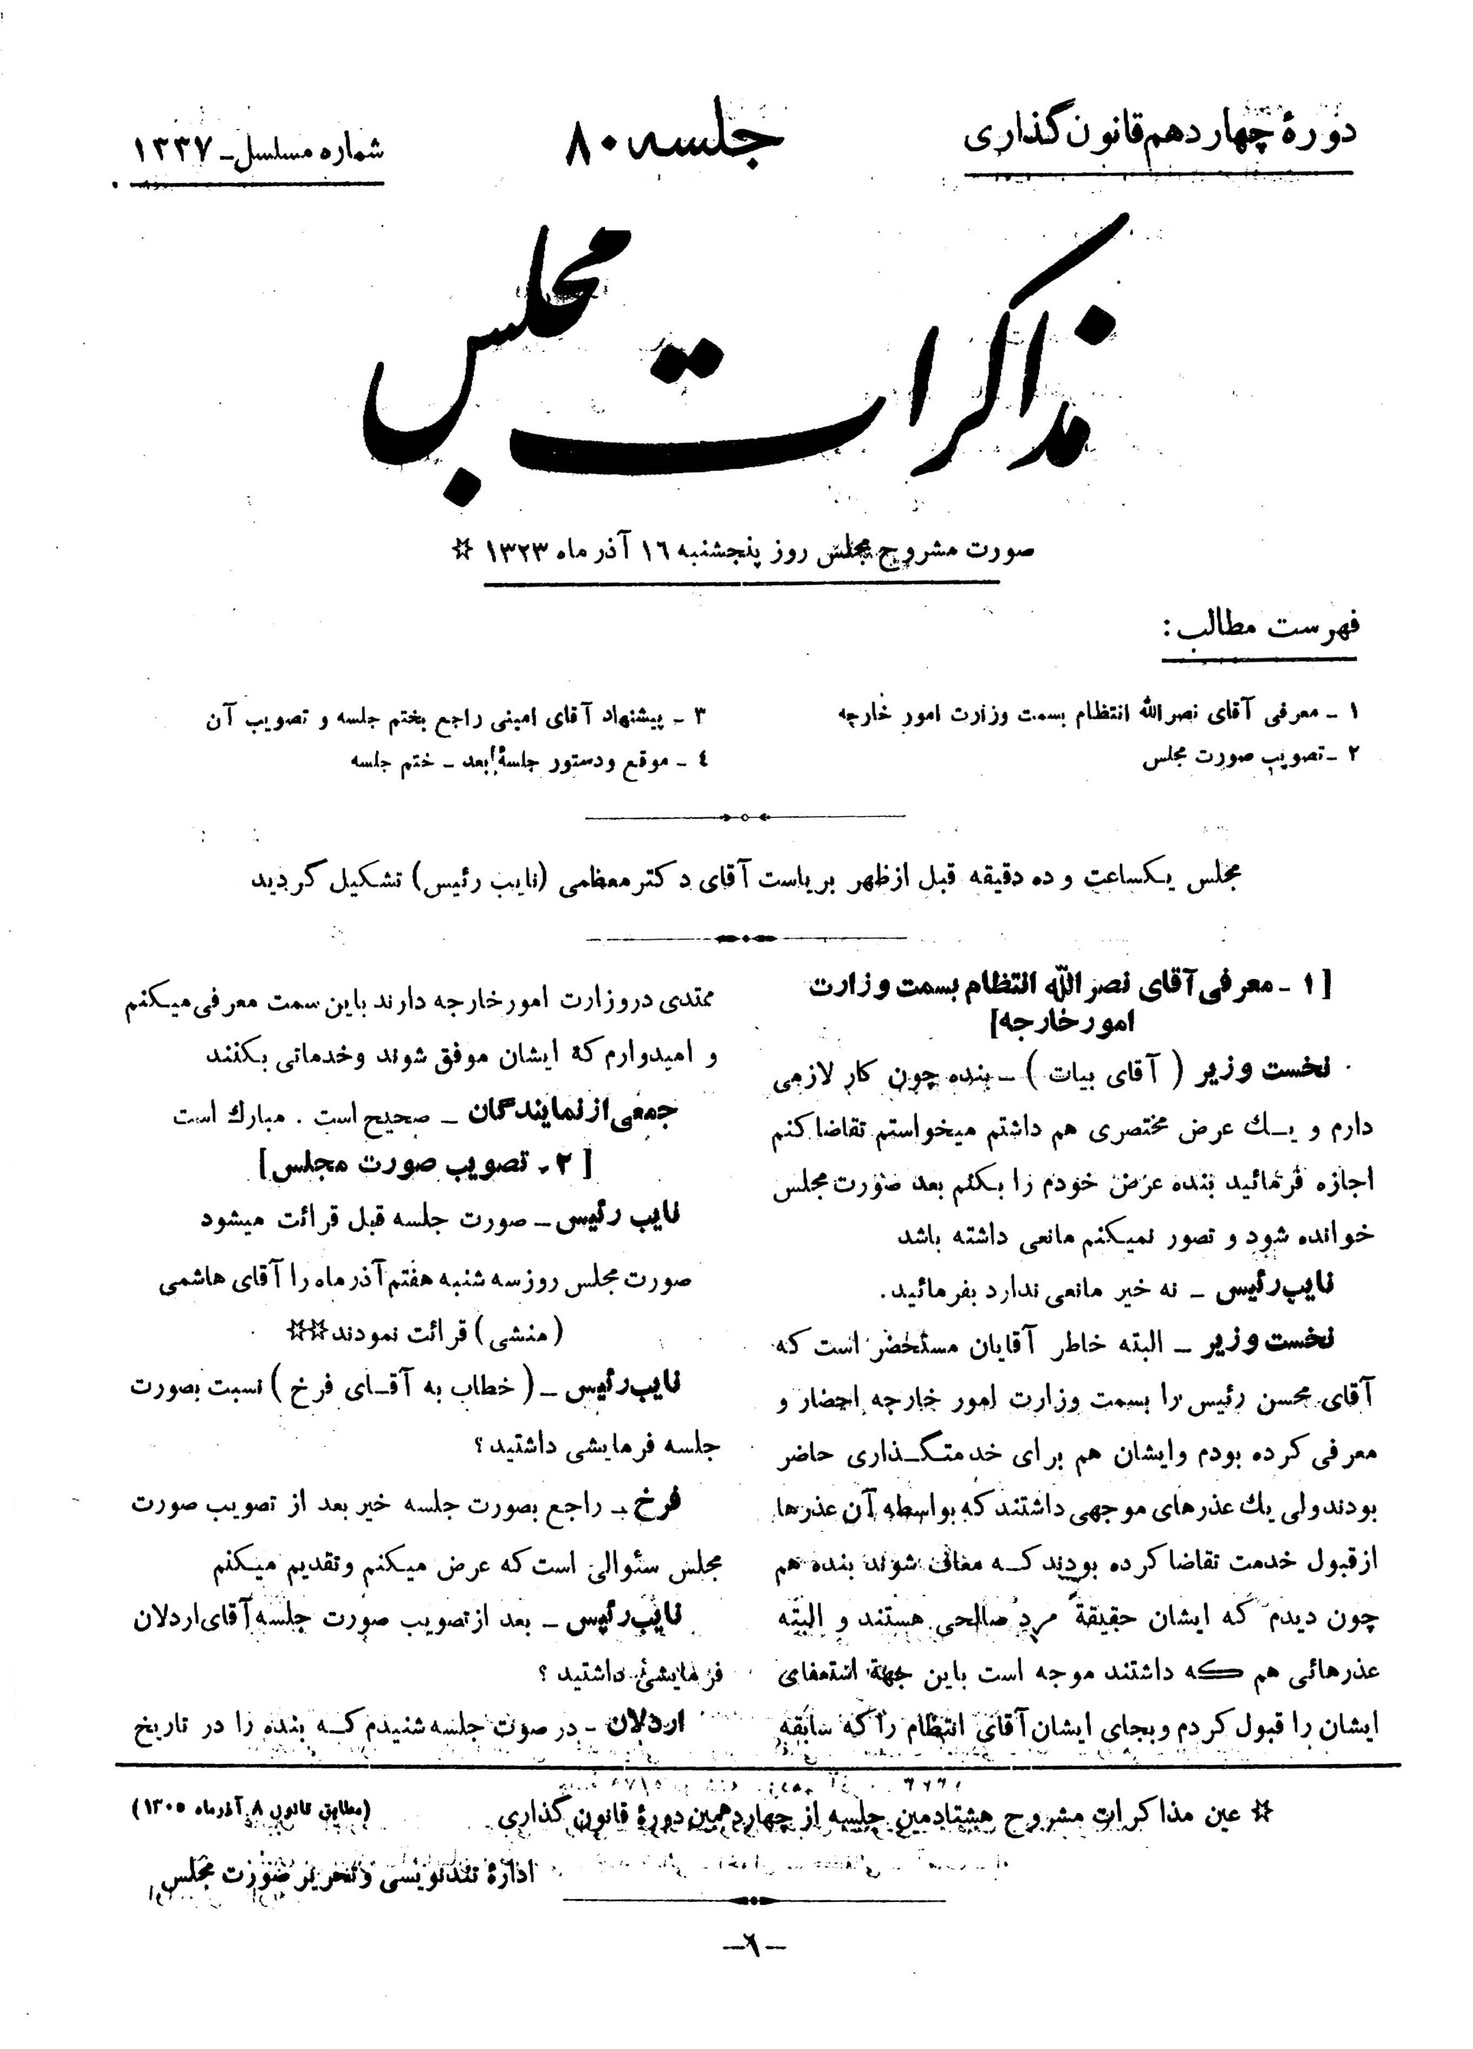 دورهٔ چهاردهم قانون‌گذاری
جلسه ۸۰
شماره مسلسل ـ ۱۳۳۷
مذاکرات مجلس
صورت مشروح مجلس روز پنجشنبه ۱۶ آذر ماه ۱۳۲۳ ☆
فهرست مطالب :
۱ ـ معرفی آقای نصرالله انتظام بسمت وزارت امور خارجه
۲ ـ تصویب صورت مجلس
۳ ـ پیشنهاد آقای امینی راجع بختم جلسه و تصویب آن
٤ ـ موقع ودستور جلسهٔ بعد ـ ختم جلسه
مجلس یکساعت و ده دقیقه قبل ازظهر بریاست آقای دکترمعظمی (نایب رئیس) تشکیل گردید
[ ۱ ـ معرفی آقای نصرالله انتظام بسمت وزارت
امورخارجه]
نخست وزیر ( آقای بیات ) ـ بنده چون کار لازمی
دارم و یـك عرض مختصری هم داشتم میخواستم تقاضاکنم
اجازه فرمائید بنده عرض خودم را بکنم بعد صورت مجلس
خوانده شود و تصور نمیکنم مانعی داشته باشد
نایب رئیس ـ نه خیر مانعی ندارد بفرمائید.
نخست وزیر ـ البته خاطر آقایان مستحضر است که
آقای محسن رئیس را بسمت وزارت امور خارجه احضار و
معرفی کرده بودم وایشان هم برای خدمتگـذاری حاضر
بودندولی یك عذرهای موجهی داشتند که بواسطه آن عذرها
ازقبول خدمت تقاضا کرده بودند کـه معاف شوند بنده هم
چون دیدم که ایشان حقیقةً مرد صالحی هستند و البته
عذرهائی هم که داشتند موجه است باین جهة استعفای
ایشان را قبول کردم وبجای ایشان آقای انتظام را که سابقه
ممتدی دروزارت امورخارجه دارند باین سمت معرفی میکنم
و امیدوارم که ایشان موفق شوند وخدماتی بکنند
جمعی از نمایندگان ـ صحیح است . مبارك است
[ ۲ ـ تصویب صورت مجلس ]
نایب رئیس ـ صورت جلسه قبل قرائت میشود
صورت مجلس روزسه شنبه هفتم آذرماه را آقای هاشمی
(منشی) قرائت نمودند☆☆
نایب رئیس ـ ( خطاب به آقـای فرخ ) نسبت بصورت
جلسه فرمایشی داشتید ؟
فرخ ـ راجع بصورت جلسه خیر بعد از تصویب صورت
مجلس سئوالی است که عرض میکنم وتقدیم میکنم
نایب رئیس ـ بعد ازتصویب صورت جلسه آقای اردلان
فرمایشی داشتید ؟
اردلان ـ در صوت جلسه شنیدم کـه بنده را در تاریخ
☆ عین مذاکرات مشروح هشتادمین جلسه از چهاردهمین دورهٔ قانون گذاری
(مطابق قانون ۸ آذرماه ۱۳۰۵)
ادارهٔ تندنویسی و تحریر صورت مجلس
ـ٦ـ